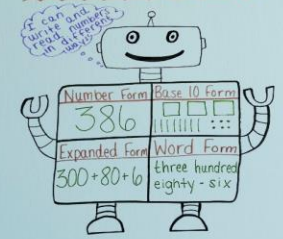 I can
write and
read numbers
in different
ways!
Number Form
Base 10 Form
386
Expanded Form
Word Form
300+80+6
three hundred
eighty-six